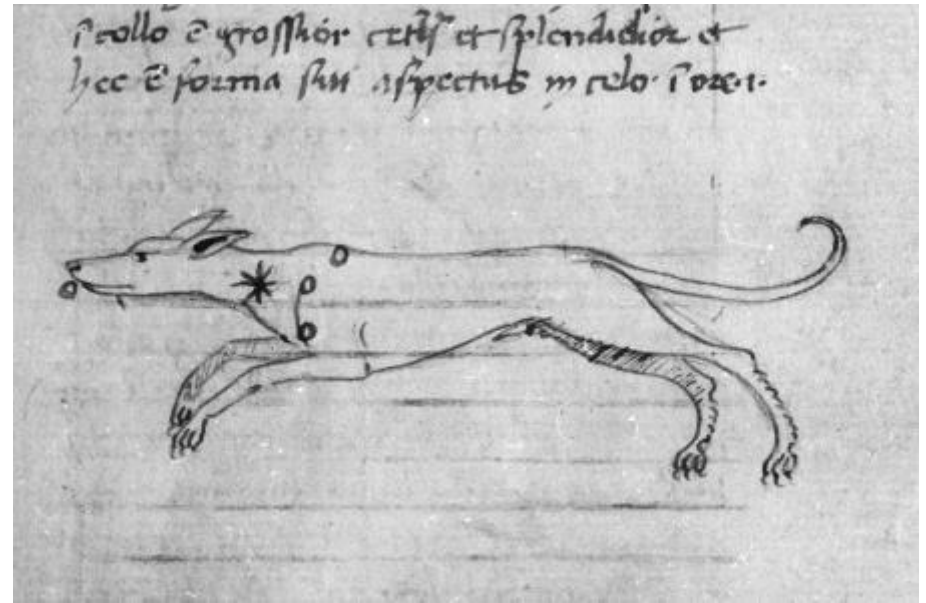 ī collo ē grossior ceteris et splendidior et
hec ē forma sui aspectus in celo. ī ore .1.